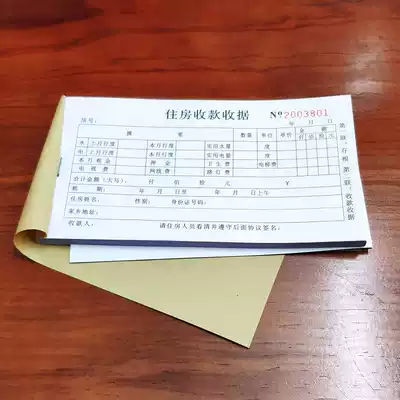 住房收款收据 Nº2003801
房号: 年 月 日
摘 要 数量 单位 单价 金 额
水 上月行度 本月行度 实用水量 度
电 上月行度 本月行度 实用电量 度
本月租金 押金 卫生费 电梯费
电视费 网线费 路灯费
合计金额(大写): 仟 佰 拾 元 ¥
租期: 年 月 日至 年 月 日上午
住房姓名: 性别: 身份证号码:
家乡地址:
收款人: 请住房人员看清并遵守后面协议签名:
第一联:存根 第二联:收款收据